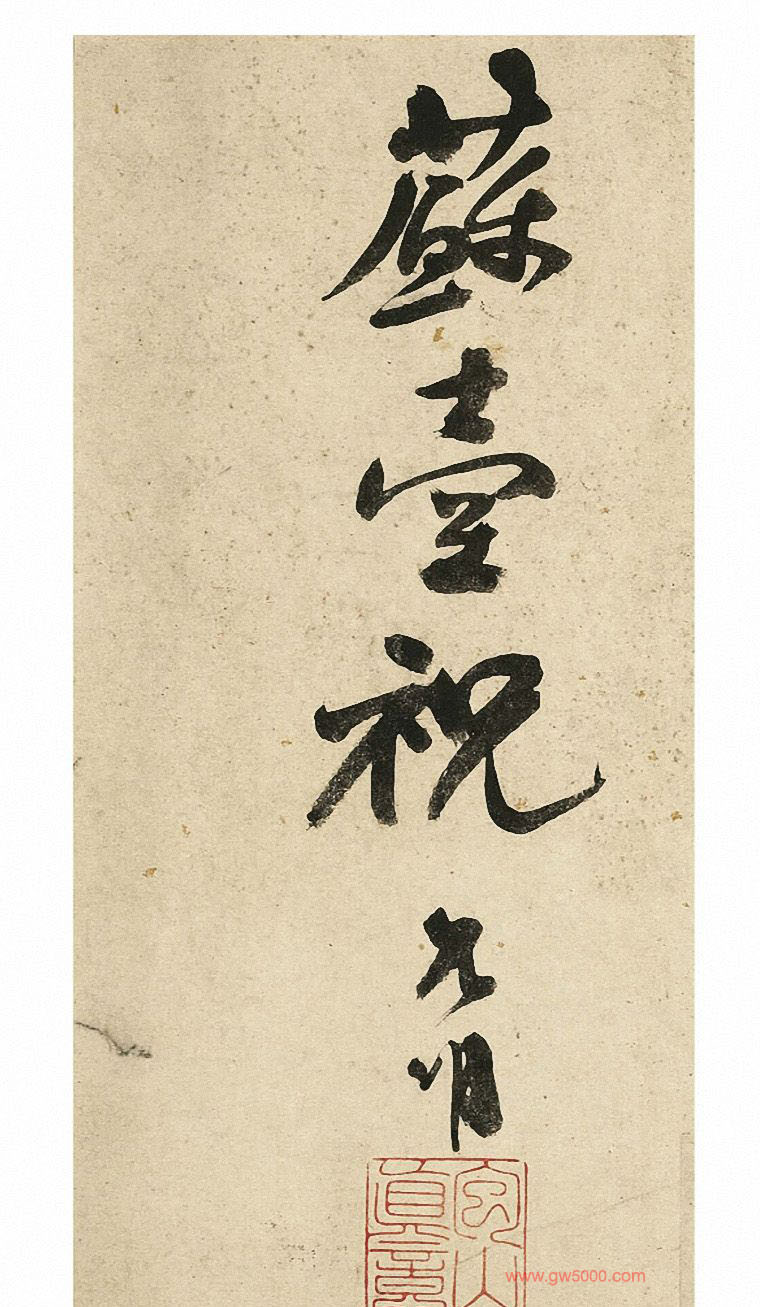 蘇臺祝允明
www.gw5000.com